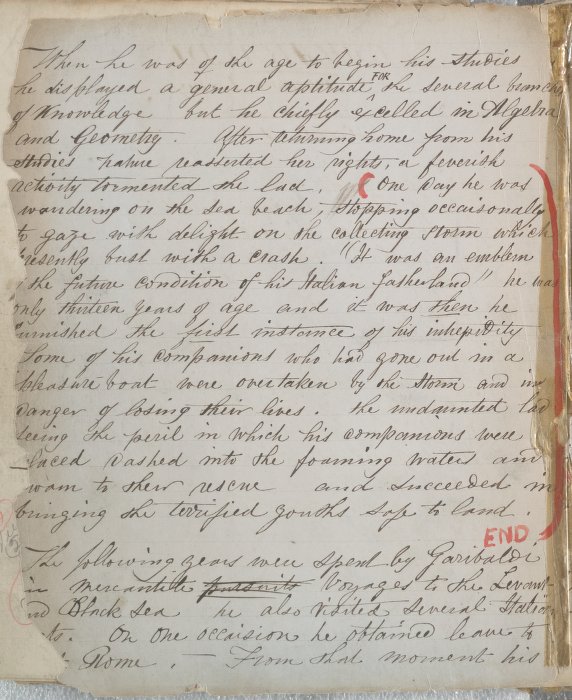 When he was of the age to begin his studies
he displayed a general aptitude FOR the several branche
of Knowledge but he chiefly excelled in Algebra
and Geometry. After returning home from his
studies nature reasserted her right, a feverish
activity tormented the lad. (One day he was
wandering on the sea beach stopping occaisonally
to gaze with delight on the collecting storm which
resently bust with a crash. "It was an emblem
the future condition of his Italian fatherland" he was
only thirteen years of age and it was then he
urnished the first instance of his
Some of his companions who had gone out in a
pleasure boat were overtaken by the storm and in
danger of losing their lives. The undaunted lad
seeing the peril in which his companions were
laced dashed into the foaming waters and
wam to their rescue and succeeded in
bringing the terrified youths safe to land.
END
The following years were spent by Garibaldi
in mercantile pursuits Voyages to the Levant
nd Black Sea he also visited several Italian
ts. On one occaision he obtained leave to
Rome. — From that moment his